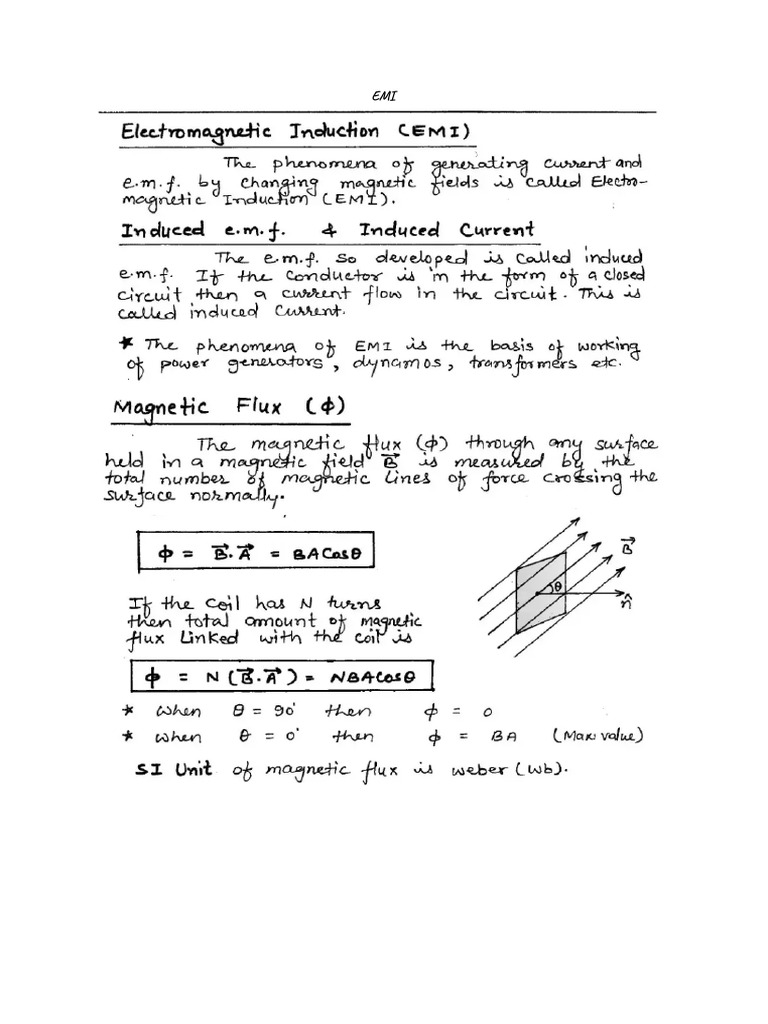 EMI
Electromagnetic Induction (EMI)
The phenomena of generating current and
e.m.f. by changing magnetic fields is called Electro-
magnetic Induction (EMI).
Induced e.m.f. & Induced Current
The e.m.f. so developed is called induced
e.m.f. If the conductor is in the form of a closed
circuit then a current flow in the circuit. This is
called induced current.
* The phenomena of EMI is the basis of working
of power generators, dynamos, transformers etc.
Magnetic Flux (ϕ)
The magnetic flux (ϕ) through any surface
held in a magnetic field B⃗ is measured by the
total number of magnetic lines of force crossing the
surface normally.
ϕ = B⃗.A⃗ = BACosθ
B⃗
θ
n̂
If the coil has N turns
then total amount of magnetic
flux linked with the coil is
ϕ = N(B⃗.A⃗) = NBACosθ
* when θ = 90° then ϕ = 0
* when θ = 0° then ϕ = BA (Max. value)
SI Unit of magnetic flux is weber (Wb).